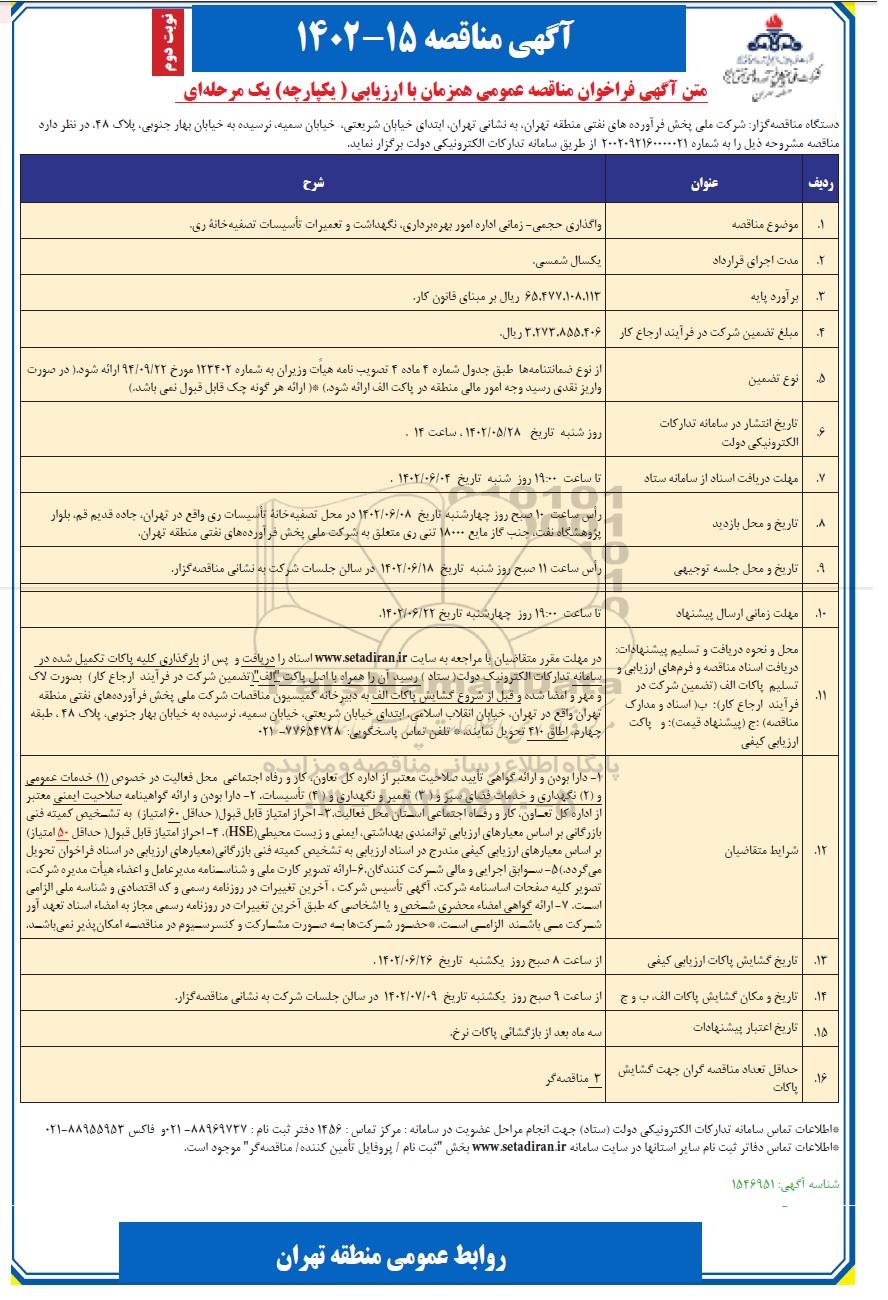 آگهی مناقصه ۱۵-۱۴۰۲
نوبت دوم
متن آگهی فراخوان مناقصه عمومی همزمان با ارزیابی ( یکپارچه) یک مرحله‌ای
دستگاه مناقصه‌گزار: شرکت ملی پخش فرآورده های نفتی منطقه تهران، به نشانی تهران، ابتدای خیابان شریعتی، خیابان سمیه، نرسیده به خیابان بهار جنوبی، پلاک ۴۸، در نظر دارد
مناقصه مشروحه ذیل را به شماره ۲۰۰۲۰۹۲۱۶۰۰۰۰۰۲۱ از طریق سامانه تدارکات الکترونیکی دولت برگزار نماید.
ردیف عنوان شرح
۱. موضوع مناقصه واگذاری حجمی- زمانی اداره امور بهره‌برداری، نگهداشت و تعمیرات تأسیسات تصفیه‌خانهٔ ری.
۲. مدت اجرای قرارداد یکسال شمسی.
۳. برآورد پایه ۶۵،۴۷۷،۱۰۸،۱۱۳ ریال بر مبنای قانون کار.
۴. مبلغ تضمین شرکت در فرآیند ارجاع کار ۳،۲۷۳،۸۵۵،۴۰۶ ریال.
۵. نوع تضمین از نوع ضمانتنامه‌ها طبق جدول شماره ۴ ماده ۴ تصویب نامه هیأت وزیران به شماره ۱۲۳۴۰۲ مورخ ۹۴/۰۹/۲۲ ارائه شود.( در صورت
واریز نقدی رسید وجه امور مالی منطقه در پاکت الف ارائه شود.) *( ارائه هر گونه چک قابل قبول نمی باشد.)
۶. تاریخ انتشار در سامانه تدارکات
الکترونیکی دولت
روز شنبه تاریخ ۱۴۰۲/۰۵/۲۸ ، ساعت ۱۴ .
۷. مهلت دریافت اسناد از سامانه ستاد تا ساعت ۱۹:۰۰ روز شنبه تاریخ ۱۴۰۲/۰۶/۰۴ .
۸. تاریخ و محل بازدید رأس ساعت ۱۰ صبح روز چهارشنبه تاریخ ۱۴۰۲/۰۶/۰۸ در محل تصفیه‌خانهٔ تأسیسات ری واقع در تهران، جاده قدیم قم، بلوار
پژوهشگاه نفت، جنب گاز مایع ۱۸۰۰۰ تنی ری متعلق به شرکت ملی پخش فرآورده‌های نفتی منطقه تهران.
۹. تاریخ و محل جلسه توجیهی رأس ساعت ۱۱ صبح روز شنبه تاریخ ۱۴۰۲/۰۶/۱۸ در سالن جلسات شرکت به نشانی مناقصه‌گزار.
۱۰. مهلت زمانی ارسال پیشنهاد تا ساعت ۱۹:۰۰ روز چهارشنبه تاریخ ۱۴۰۲/۰۶/۲۲.
۱۱. محل و نحوه دریافت و تسلیم پیشنهادات:
دریافت اسناد مناقصه و فرم‌های ارزیابی و
تسلیم پاکات الف (تضمین شرکت در
فرآیند ارجاع کار): ب( اسناد و مدارک
مناقصه) :ج (پیشنهاد قیمت): و پاکت
ارزیابی کیفی
در مهلت مقرر متقاضیان با مراجعه به سایت www.setadiran.ir اسناد را دریافت و پس از بارگذاری کلیه پاکات تکمیل شده در
سامانه تدارکات الکترونیک دولت( ستاد ) رسید آن را همراه با اصل پاکت "الف"(تضمین شرکت در فرآیند ارجاع کار) بصورت لاک
و مهر و امضا شده و قبل از شروع گشایش پاکات الف به دبیرخانه کمیسیون مناقصات شرکت ملی پخش فرآورده‌های نفتی منطقه
تهران واقع در تهران، خیابان انقلاب اسلامی، ابتدای خیابان شریعتی، خیابان سمیه، نرسیده به خیابان بهار جنوبی، پلاک ۴۸ ، طبقه
چهارم، اطاق ۴۱۰ تحویل نمایند.* تلفن تماس پاسخگویی: ۷۷۶۵۴۷۲۸- ۰۲۱
۱۲. شرایط متقاضیان
۱- دارا بودن و ارائه گواهی تأیید صلاحیت معتبر از اداره کل تعاون، کار و رفاه اجتماعی محل فعالیت در خصوص (۱) خدمات عمومی
و (۲) نگهداری و خدمات فضای سبز و ( ۳) تعمیر و نگهداری و ( ۴) تأسیسات. ۲- دارا بودن و ارائه گواهینامه صلاحیت ایمنی معتبر
از اداره کل تعـاون، کار و رفـاه اجتماعی اسـتان محل فعالیت.۳- احراز امتیاز قابل قبول( حداقل ۶۰ امتیاز) به تشـخیص کمیته فنی
بازرگانی بر اساس معیارهای ارزیابی توانمندی بهداشتی، ایمنی و زیست محیطی(HSE). ۴- احراز امتیاز قابل قبول( حداقل ۵۰ امتیاز)
بر اساس معیارهای ارزیابی کیفی مندرج در اسناد ارزیابی به تشخیص کمیته فنی بازرگانی(معیارهای ارزیابی در اسناد فراخوان تحویل
می‌گردد.)۵- سـوابق اجرایی و مالی شـرکت کنندگان.۶-ارائه تصویر کارت ملی و شناسـنامه مدیرعامل و اعضاء هیأت مدیره شرکت،
تصویر کلیه صفحات اساسنامه شرکت، آگهی تأسیس شرکت ، آخرین تغییرات در روزنامه رسمی و کد اقتصادی و شناسه ملی الزامی
اسـت. ۷- ارائه گواهی امضاء محضری شـخص و یا اشخاصی که طبق آخرین تغییرات در روزنامه رسمی مجاز به امضاء اسناد تعهد آور
شـرکت مـی باشـند الزامـی اسـت. *حضـور شـرکت‌ها بـه صـورت مشـارکت و کنسرسـیوم در مناقصـه امکان‌پذیر نمی‌باشـد.
۱۳. تاریخ گشایش پاکات ارزیابی کیفی از ساعت ۸ صبح روز یکشنبه تاریخ ۱۴۰۲/۰۶/۲۶ .
۱۴. تاریخ و مکان گشایش پاکات الف، ب و ج از ساعت ۹ صبح روز یکشنبه تاریخ ۱۴۰۲/۰۷/۰۹ در سالن جلسات شرکت به نشانی مناقصه‌گزار.
۱۵. تاریخ اعتبار پیشنهادات سه ماه بعد از بازگشائی پاکات نرخ.
۱۶. حداقل تعداد مناقصه گران جهت گشایش
پاکات
۳ مناقصه‌گر
*اطلاعات تماس سامانه تدارکات الکترونیکی دولت (ستاد) جهت انجام مراحل عضویت در سامانه : مرکز تماس : ۱۴۵۶ دفتر ثبت نام : ۸۸۹۶۹۷۳۷- ۰۲۱و فاکس ۸۸۹۵۵۹۵۳-۰۲۱
*اطلاعات تماس دفاتر ثبت نام سایر استانها در سایت سامانه www.setadiran.ir بخش "ثبت نام / پروفایل تأمین کننده/ مناقصه‌گر" موجود است.
شناسه آگهی: ۱۵۴۶۹۵۱
روابط عمومی منطقه تهران